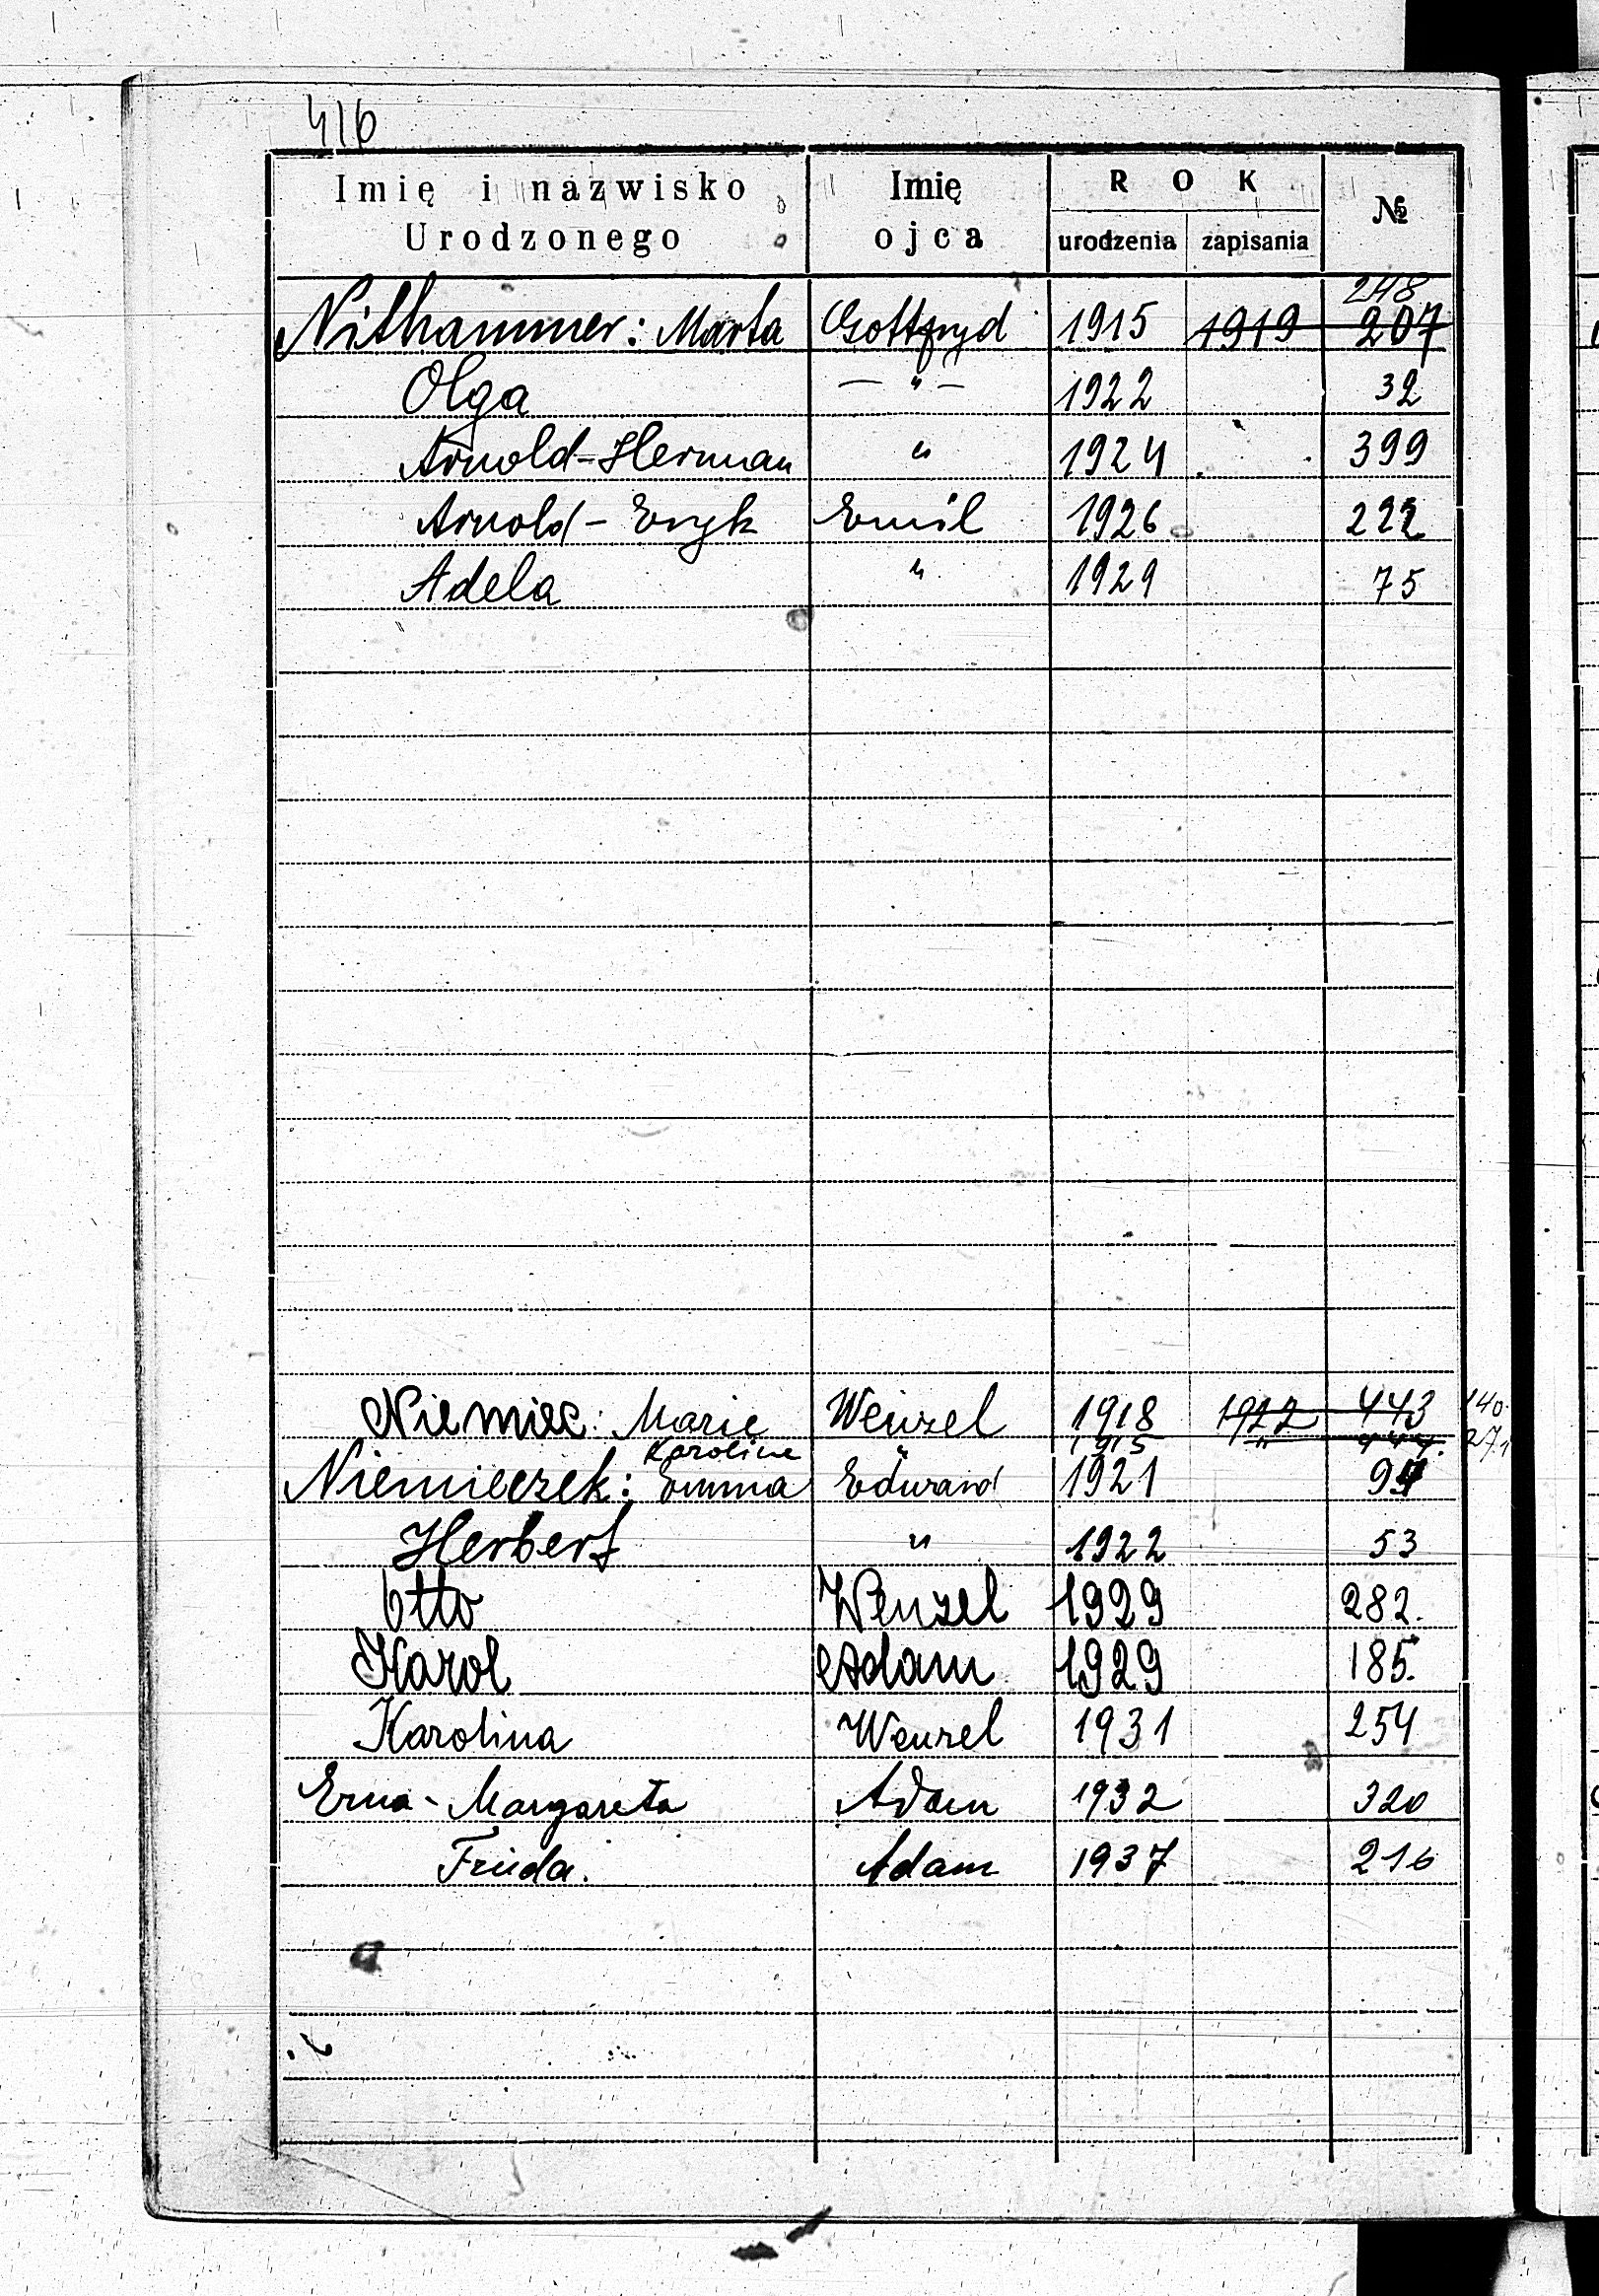 416
Imię i nazwisko Urodzonego Imię ojca ROK urodzenia zapisania №
248
Nithammer: Marta Gottfryd 1915 1919 207
Olga — " — 1922 32
Arnold-Herman " 1924 399
Arnold - Eryk Emil 1926 222
Adela " 1929 75
Niemiec: Marie Wenzel 1918 1922 443 140
Karoline " 1915 " 444. 271
Niemieczek: Emma Edward 1921 97
Herbert " 1922 53
Otto Wenzel 1929 282.
Karol Adam 1929 185.
Karolina Wenzel 1931 254
Erna - Margareta Adam 1932 320
Frieda. Adam 1937 216